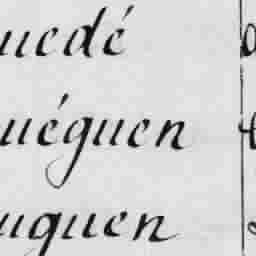 uedé
uéguen
uguen